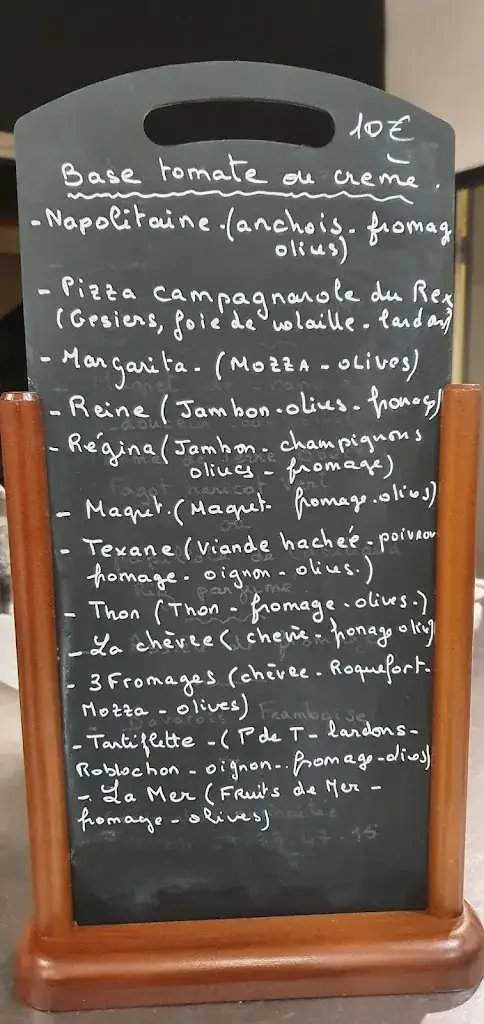 10€
Base tomate ou creme.
- Napolitaine. (anchois - fromag
olives)
- Pizza campagnarole du Rex
(Gesiers, foie de volaille - lardon)
- Margarita - (Mozza - olives)
- Reine (Jambon - olives - fromage)
- Régina (Jambon - champignons
olives - fromage)
- Magret. (Magret - fromage - olives)
- Texane (viande hachée - poivron
fromage - oignon - olives.)
- Thon (Thon - fromage - olives.)
- La chèvre (chèvre - fromage oliv)
- 3 Fromages (chèvre - Roquefort -
Mozza - olives)
- Tartiflette - (P de T - lardons -
Roblochon - oignon - fromage - olives)
- La Mer (Fruits de Mer -
fromage - olives)